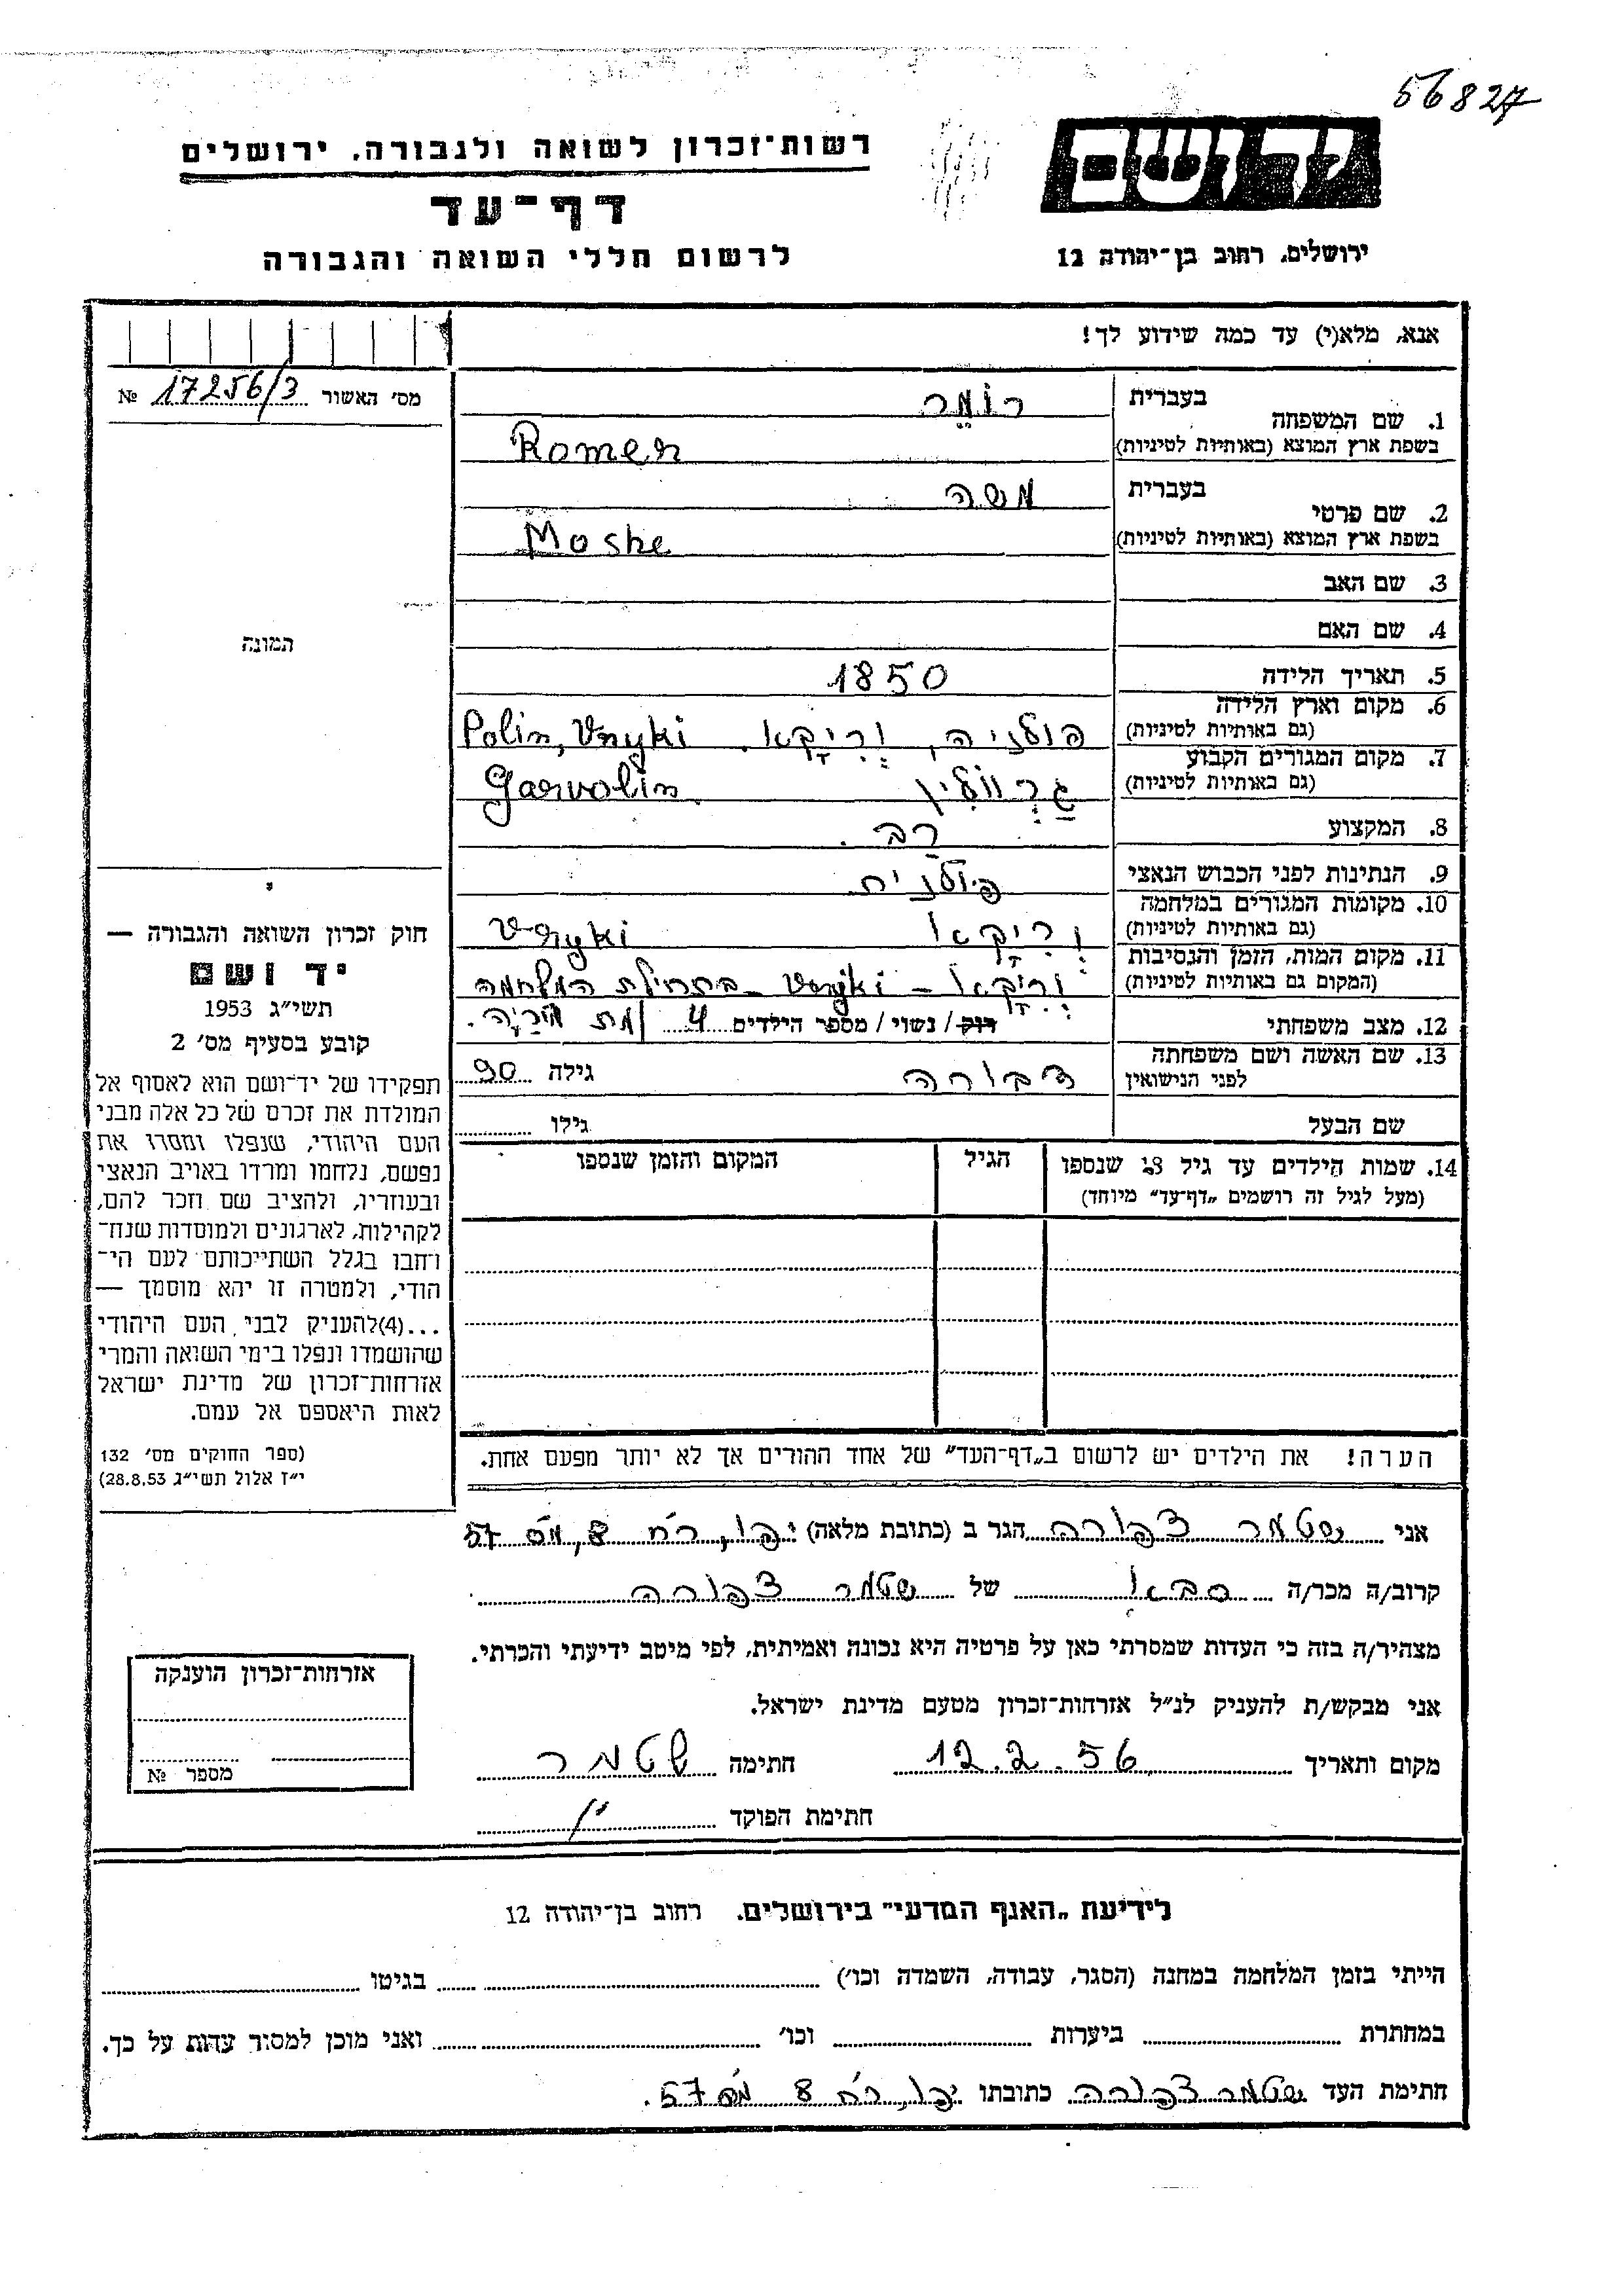 56827
רשות־זכרון לשואה ולגבורה, ירושלים
יד ושם
דף־עד
לרשום חללי השואה והגבורה
ירושלים, רחוב בן־יהודה 12
אנא, מלא(י) עד כמה שידוע לך!
מס׳ האשור 17256/3 №
1. שם המשפחה
בעברית רוֹמֶר
בשפת ארץ המוצא (באותיות לטיניות) Romer
2. שם פרטי
בעברית משה
בשפת ארץ המוצא (באותיות לטיניות) Moshe
3. שם האב
4. שם האם
התמונה
5. תאריך הלידה 1850
6. מקום וארץ הלידה
(גם באותיות לטיניות) פולניה, וְרִיקָא. Polin, Vryki
7. מקום המגורים הקבוע
(גם באותיות לטיניות) גַרְווֹלין Garvolin
8. המקצוע רַב.
9. הנתינות לפני הכבוש הנאצי פולנית
10. מקומות המגורים במלחמה
(גם באותיות לטיניות) וְרִיקָא Vryki
11. מקום המות, הזמן והנסיבות
(המקום גם באותיות לטיניות) וְרִיקָא – Vryki – בתחילת המלחמה
12. מצב משפחתי רוק / נשוי / מספר הילדים 4
13. שם האשה ושם משפחתה
לפני הנישואין דבורה גילה 90
שם הבעל גילו
14. שמות הילדים עד גיל 18 שנספו הגיל המקום והזמן שנספו
(מעל לגיל זה רושמים „דף־עד” מיוחד)
חוק זכרון השואה והגבורה —
יד ושם
תשי״ג 1953
קובע בסעיף מס׳ 2
תפקידו של יד־ושם הוא לאסוף אל
המולדת את זכרם של כל אלה מבני
העם היהודי, שנפלו ומסרו את
נפשם, נלחמו ומרדו באויב הנאצי
ובעוזריו, ולהציב שם וזכר להם,
לקהילות, לארגונים ולמוסדות שנח־
רחבו בגלל השתייכותם לעם הי־
הודי, ולמטרה זו יהא מוסמך —
...(4)להעניק לבני העם היהודי
שהושמדו ונפלו בימי השואה והמרי
אזרחות־זכרון של מדינת ישראל
לאות היאספם אל עמם.
(ספר החוקים מס׳ 132
י״ז אלול תשי״ג 28.8.53)
הערה! את הילדים יש לרשום ב„דף־העד” של אחד ההורים אך לא יותר מפעם אחת.
אני שטמר צפורה הגר ב (כתובת מלאה) יפו, רח 8, מס 57
קרוב/ה מכר/ה סבא של שטמר צפורה
מצהיר/ה בזה כי העדות שמסרתי כאן על פרטיה היא נכונה ואמיתית, לפי מיטב ידיעתי והכרתי.
אני מבקש/ת להעניק לנ״ל אזרחות־זכרון מטעם מדינת ישראל.
מקום ותאריך 12.2.56 חתימה שטמר
חתימת הפוקד
אזרחות־זכרון הוענקה
מספר №
לידיעת „האגף המדעי” בירושלים. רחוב בן־יהודה 12
הייתי בזמן המלחמה במחנה (הסגר, עבודה, השמדה וכו׳) בגיטו
במחתרת ביערות וכו׳ ואני מוכן למסור עדות על כך.
חתימת העד שטמר צפורה כתובתו יפו, רח 8 מס 57.